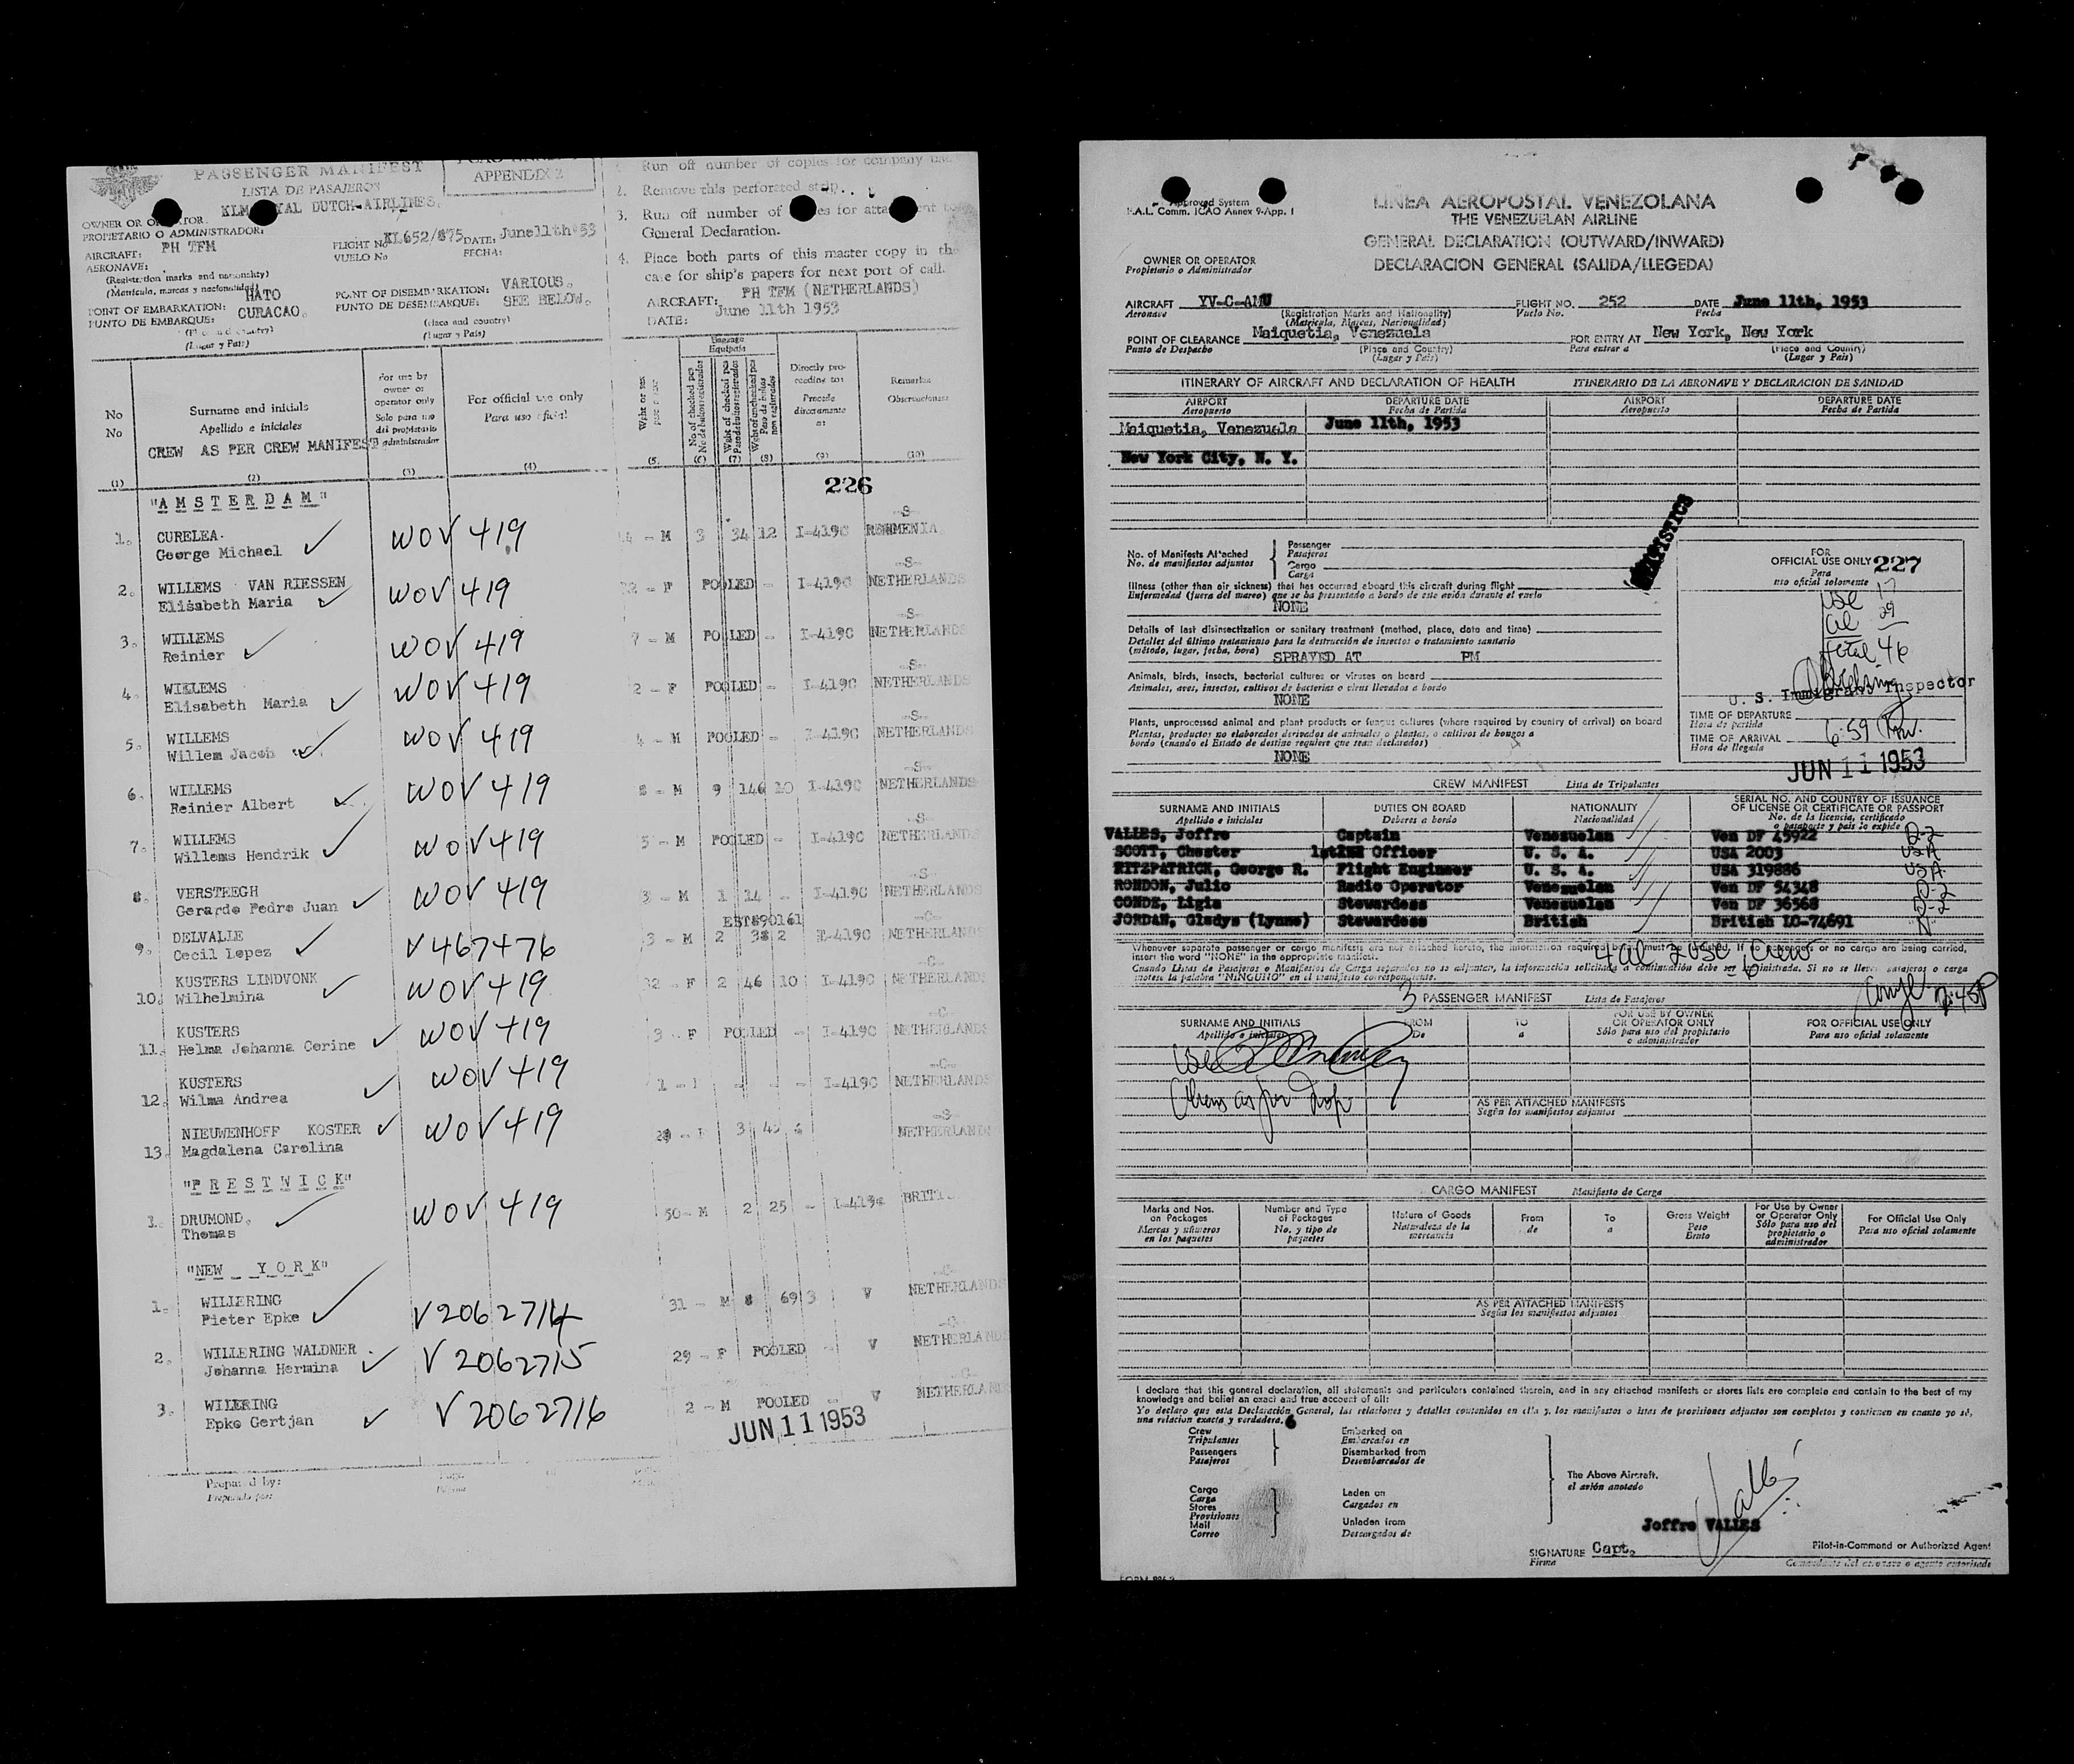 PASSENGER MANIFEST
LISTA DE PASAJEROS
APPENDIX 2
KLM ROYAL DUTCH-AIRLINES.
OWNER OR OPERATOR:
PROPIETARIO O ADMINISTRADOR:
AIRCRAFT: PH TFM
AERONAVE:
(Registration marks and nationality)
(Matricula, marcas y nacionalidad)
FLIGHT No KL652/875 DATE: June 11th '53
VUELO No FECHA:
POINT OF EMBARKATION: HATO
PUNTO DE EMBARQUE: CURACAO.
(Lugar y Pais)
POINT OF DISEMBARKATION: VARIOUS.
PUNTO DE DESEMBARQUE: SEE BELOW.
(place and country)
(Lugar y Pais)
Run off number of copies for company use
2. Remove this perforated strip.
3. Run off number of copies for attachment to
General Declaration.
4. Place both parts of this master copy in the
case for ship's papers for next port of call.
AIRCRAFT: PH TFM (NETHERLANDS)
DATE: June 11th 1953
No
No
Surname and initials
Apellido e iniciales
CREW AS PER CREW MANIFEST
For use by
owner or
operator only
Solo para uso
del propietario
administrador
For official use only
Para uso oficial
Baggage
Equipaje
Directly pro-
ceeding to:
Procede
directamente
a:
Remarks
Observaciones
(1) (2) (3) (4) (5) (6) (7) (8) (9) (10)
226
"AMSTERDAM"
1. CURELEA.
George Michael WOV 419 - M 3 34 12 I-419C
2. WILLEMS VAN RIESSEN
Elisabeth Maria WOV 419 - F POOLED - I-419C NETHERLANDS
3. WILLEMS
Reinier WOV 419 7 - M POOLED - I-419C NETHERLANDS
4. WILLEMS
Elisabeth Maria WOV 419 2 - F POOLED - I-419C NETHERLANDS
5. WILLEMS
Willem Jacob WOV 419 4 - M POOLED - I-419C NETHERLANDS
6. WILLEMS
Reinier Albert WOV 419 8 - M 9 146 20 I-419C NETHERLANDS
7. WILLEMS
Willems Hendrik WOV 419 5 - M POOLED - I-419C NETHERLANDS
8. VERSTEEGH
Gerardo Pedro Juan WOV 419 3 - M 1 14 - I-419C NETHERLANDS
EST890161
9. DELVALLE
Cecil Lopez V467476 3 - M 2 38 2 I-419C NETHERLAND
10. KUSTERS LINDVONK
Wilhelmina WOV 419 32 - F 2 46 10 I-419C NETHERLAND
11. KUSTERS
Helma Johanna Corine WOV 419 3 - F POOLED - I-419C NETHERLANDS
12. KUSTERS
Wilma Andrea WOV 419 1 - - - - I-419C NETHERLANDS
13. NIEUWENHOFF KOSTER
Magdalena Carolina WOV 419 3 NETHERLANDS
"PRESTWICK"
1. DRUMOND.
Thomas WOV 419 50 - M 2 25 -
"NEW YORK"
1. WILLERING
Pieter Epke V2062714 31 - M 8 69 3 V NETHERLANDS
2. WILLERING WALDNER
Johanna Hermina V 2062715 29 - F POOLED - V NETHERLAND
3. WILERING
Epke Gertjan V2062716 2 - M POOLED - V NETHERLAND
JUN 11 1953
Prepared by:
Preparado por:
Approved System
F.A.L. Comm. ICAO Annex 9-App. 1
LINEA AEROPOSTAL VENEZOLANA
THE VENEZUELAN AIRLINE
GENERAL DECLARATION (OUTWARD/INWARD)
DECLARACION GENERAL (SALIDA/LLEGEDA)
OWNER OR OPERATOR
Propietario o Administrador
AIRCRAFT YV-C-AMU FLIGHT NO. 252 DATE June 11th, 1953
Aeronave Vuelo No. Fecha
(Registration Marks and Nationality)
(Matricula, Marcas, Nacionalidad)
POINT OF CLEARANCE Maiquetia, Venezuela FOR ENTRY AT New York, New York
Punto de Despacho (Place and Country) Para entrar a (Place and Country)
(Lugar y Pais) (Lugar y Pais)
ITINERARY OF AIRCRAFT AND DECLARATION OF HEALTH ITINERARIO DE LA AERONAVE Y DECLARACION DE SANIDAD
AIRPORT DEPARTURE DATE AIRPORT DEPARTURE DATE
Aeropuerto Fecha de Partida Aeropuerto Fecha de Partida
Maiquetia, Venezuela June 11th, 1953
New York City, N. Y.
No. of Manifests Attached
No. de manifiestos adjuntos
Passenger
Pasajeros
Cargo
Carga
Illness (other than air sickness) that has occurred aboard this aircraft during flight
Enfermedad (fuera del mareo) que se ha presentado a bordo de este avión durante el vuelo
NONE
Details of last disinsectization or sanitary treatment (method, place, date and time)
Detalles del último tratamiento para la destrucción de insectos o tratamiento sanitario
(método, lugar, fecha, hora) SPRAYED AT PM
Animals, birds, insects, bacterial cultures or viruses on board
Animales, aves, insectos, cultivos de bacterias o virus llevados a bordo
NONE
Plants, unprocessed animal and plant products or fungus cultures (where required by country of arrival) on board
Plantas, productos no elaborados derivados de animales o plantas, o cultivos de hongos a
bordo (cuando el Estado de destino requiere que sean declarados)
NONE
FOR
OFFICIAL USE ONLY 227
Para
uso oficial solamente
USC 17
al 29
total 46
U. S. Immigrant Inspector
TIME OF DEPARTURE
Hora de partida
TIME OF ARRIVAL 6:59 PM.
Hora de llegada
JUN 11 1953
CREW MANIFEST Lista de Tripulantes
SURNAME AND INITIALS DUTIES ON BOARD NATIONALITY SERIAL NO. AND COUNTRY OF ISSUANCE
OF LICENSE OR CERTIFICATE OR PASSPORT
Apellido e iniciales Deberes a bordo Nacionalidad No. de la licencia, certificado
o pasaporte y pais lo expide
VALLES, Joffre Captain Venezuelan Ven DF 45922 D-2
SCOTT, Chester Officer U. S. A. USA 2003 USA
FITZPATRICK, George R. Flight Engineer U. S. A. USA 319886 USA
RONDON, Julio Radio Operator Venezuelan Ven DF 54348 D-2
CONDE, Ligia Stewardess Venezuelan Ven DF 36568 D-2
JORDAN, Gladys (Lynne) Stewardess British British LO-74691 N
Whenever separate passenger or cargo manifests are not attached hereto, the information required below must be furnished. If no passengers or no cargo are being carried,
insert the word "NONE" in the appropriate manifest.
4 al 2 USC Crew
6
Cuando Listas de Pasajeros o Manifiestos de Carga separados no se adjuntan, la información solicitada a continuación debe ser suministrada. Si no se llevan pasajeros o carga
anotese la palabra "NINGUNO" en el manifiesto correspondiente.
3 PASSENGER MANIFEST Lista de Pasajeros
SURNAME AND INITIALS FROM TO FOR USE BY OWNER
OR OPERATOR ONLY FOR OFFICIAL USE ONLY
Apellido e iniciales De a Sólo para uso del propietario
o administrador Para uso oficial solamente
AS PER ATTACHED MANIFESTS
Según los manifiestos adjuntos
CARGO MANIFEST Manifiesto de Carga
Marks and Nos.
on Packages
Marcas y números
en los paquetes
Number and Type
of Packages
No. y tipo de
paquetes
Nature of Goods
Naturaleza de la
mercancia
From
de
To
a
Gross Weight
Peso
Bruto
For Use by Owner
or Operator Only
Sólo para uso del
propietario o
administrador
For Official Use Only
Para uso oficial solamente
AS PER ATTACHED MANIFESTS
Según los manifiestos adjuntos
I declare that this general declaration, all statements and particulars contained therein, and in any attached manifests or stores lists are complete and contain to the best of my
knowledge and belief an exact and true account of all:
Yo declaro que esta Declaración General, las relaciones y detalles contenidos en ella y los manifiestos o listas de provisiones adjuntos son completos y contienen en cuanto yo sé,
una relacion exacta y verdadera. 6
Crew
Tripulantes
Passengers
Pasajeros
Embarked on
Embarcados en
Disembarked from
Desembarcados de
Cargo
Carga
Stores
Provisiones
Mail
Correo
Laden on
Cargados en
Unladen from
Descargados de
The Above Aircraft.
el avión anotado
Joffre VALLES
SIGNATURE Capt. Pilot-in-Command or Authorized Agent
Firma Comandante del aeronave o agente autorizado